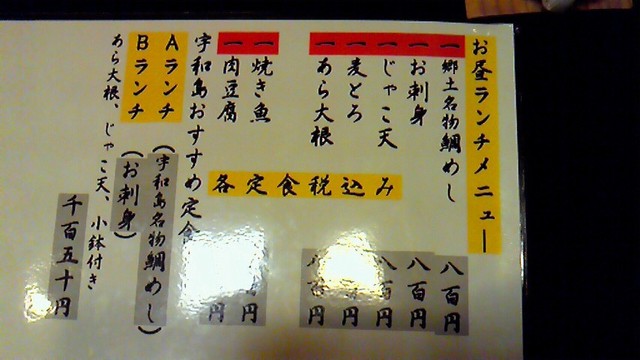 お昼ランチメニュー
一 郷土名物鯛めし 八百円
一 お刺身 八百円
一 じゃこ天 八百円
一 麦とろ 百円
一 あら大根 八百円
各定食税込み
一 焼き魚 円
一 肉豆腐 円
宇和島おすすめ定食
Aランチ (宇和島名物鯛めし)
Bランチ (お刺身)
あら大根、じゃこ天、小鉢付き
千百五十円